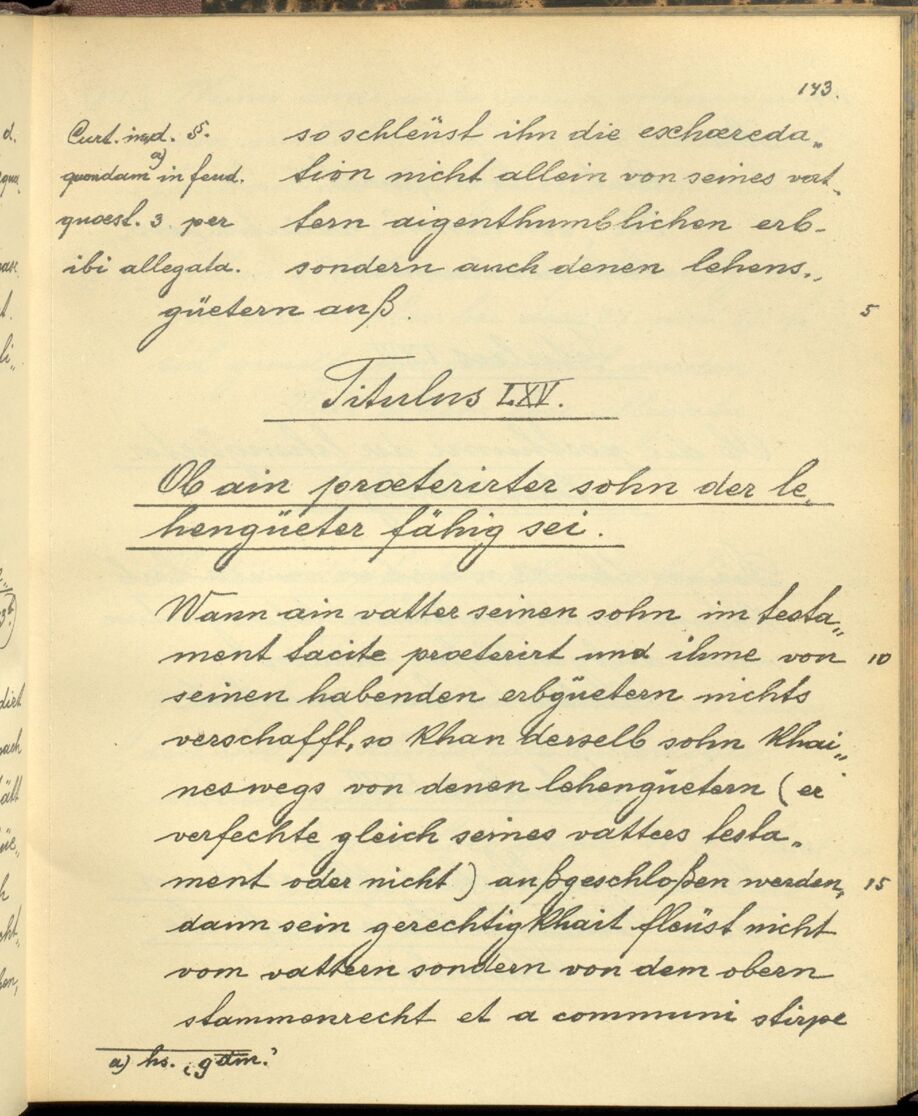 143.
Curt. in d. §.
quondam a) in feud.
quaest. 3 per
ibi allegata.
so schleüst ihn die exhæreda„
tion nicht allein von seines vat„
tern aigenthumblichen erb-
sondern auch denen lehens„
güetern auß.
5
Titulus LXV.
Ob ain præterirter sohn der le„
hengüeter fähig sei.
Wann ain vatter seinen sohn im testa„
ment tacite præterirt und ihme von 10
seinen habenden erbgüetern nichts
verschafft, so khan derselb sohn khai„
neswegs von denen lehengüetern (er
verfechte gleich seines vatters testa„
ment oder nicht) außgeschloßen werden, 15
dann sein gerechtigkhait fleüst nicht
vom vattern sondern von dem obern
stammenrecht et a communi stirpe
a) hs. „qdm.“